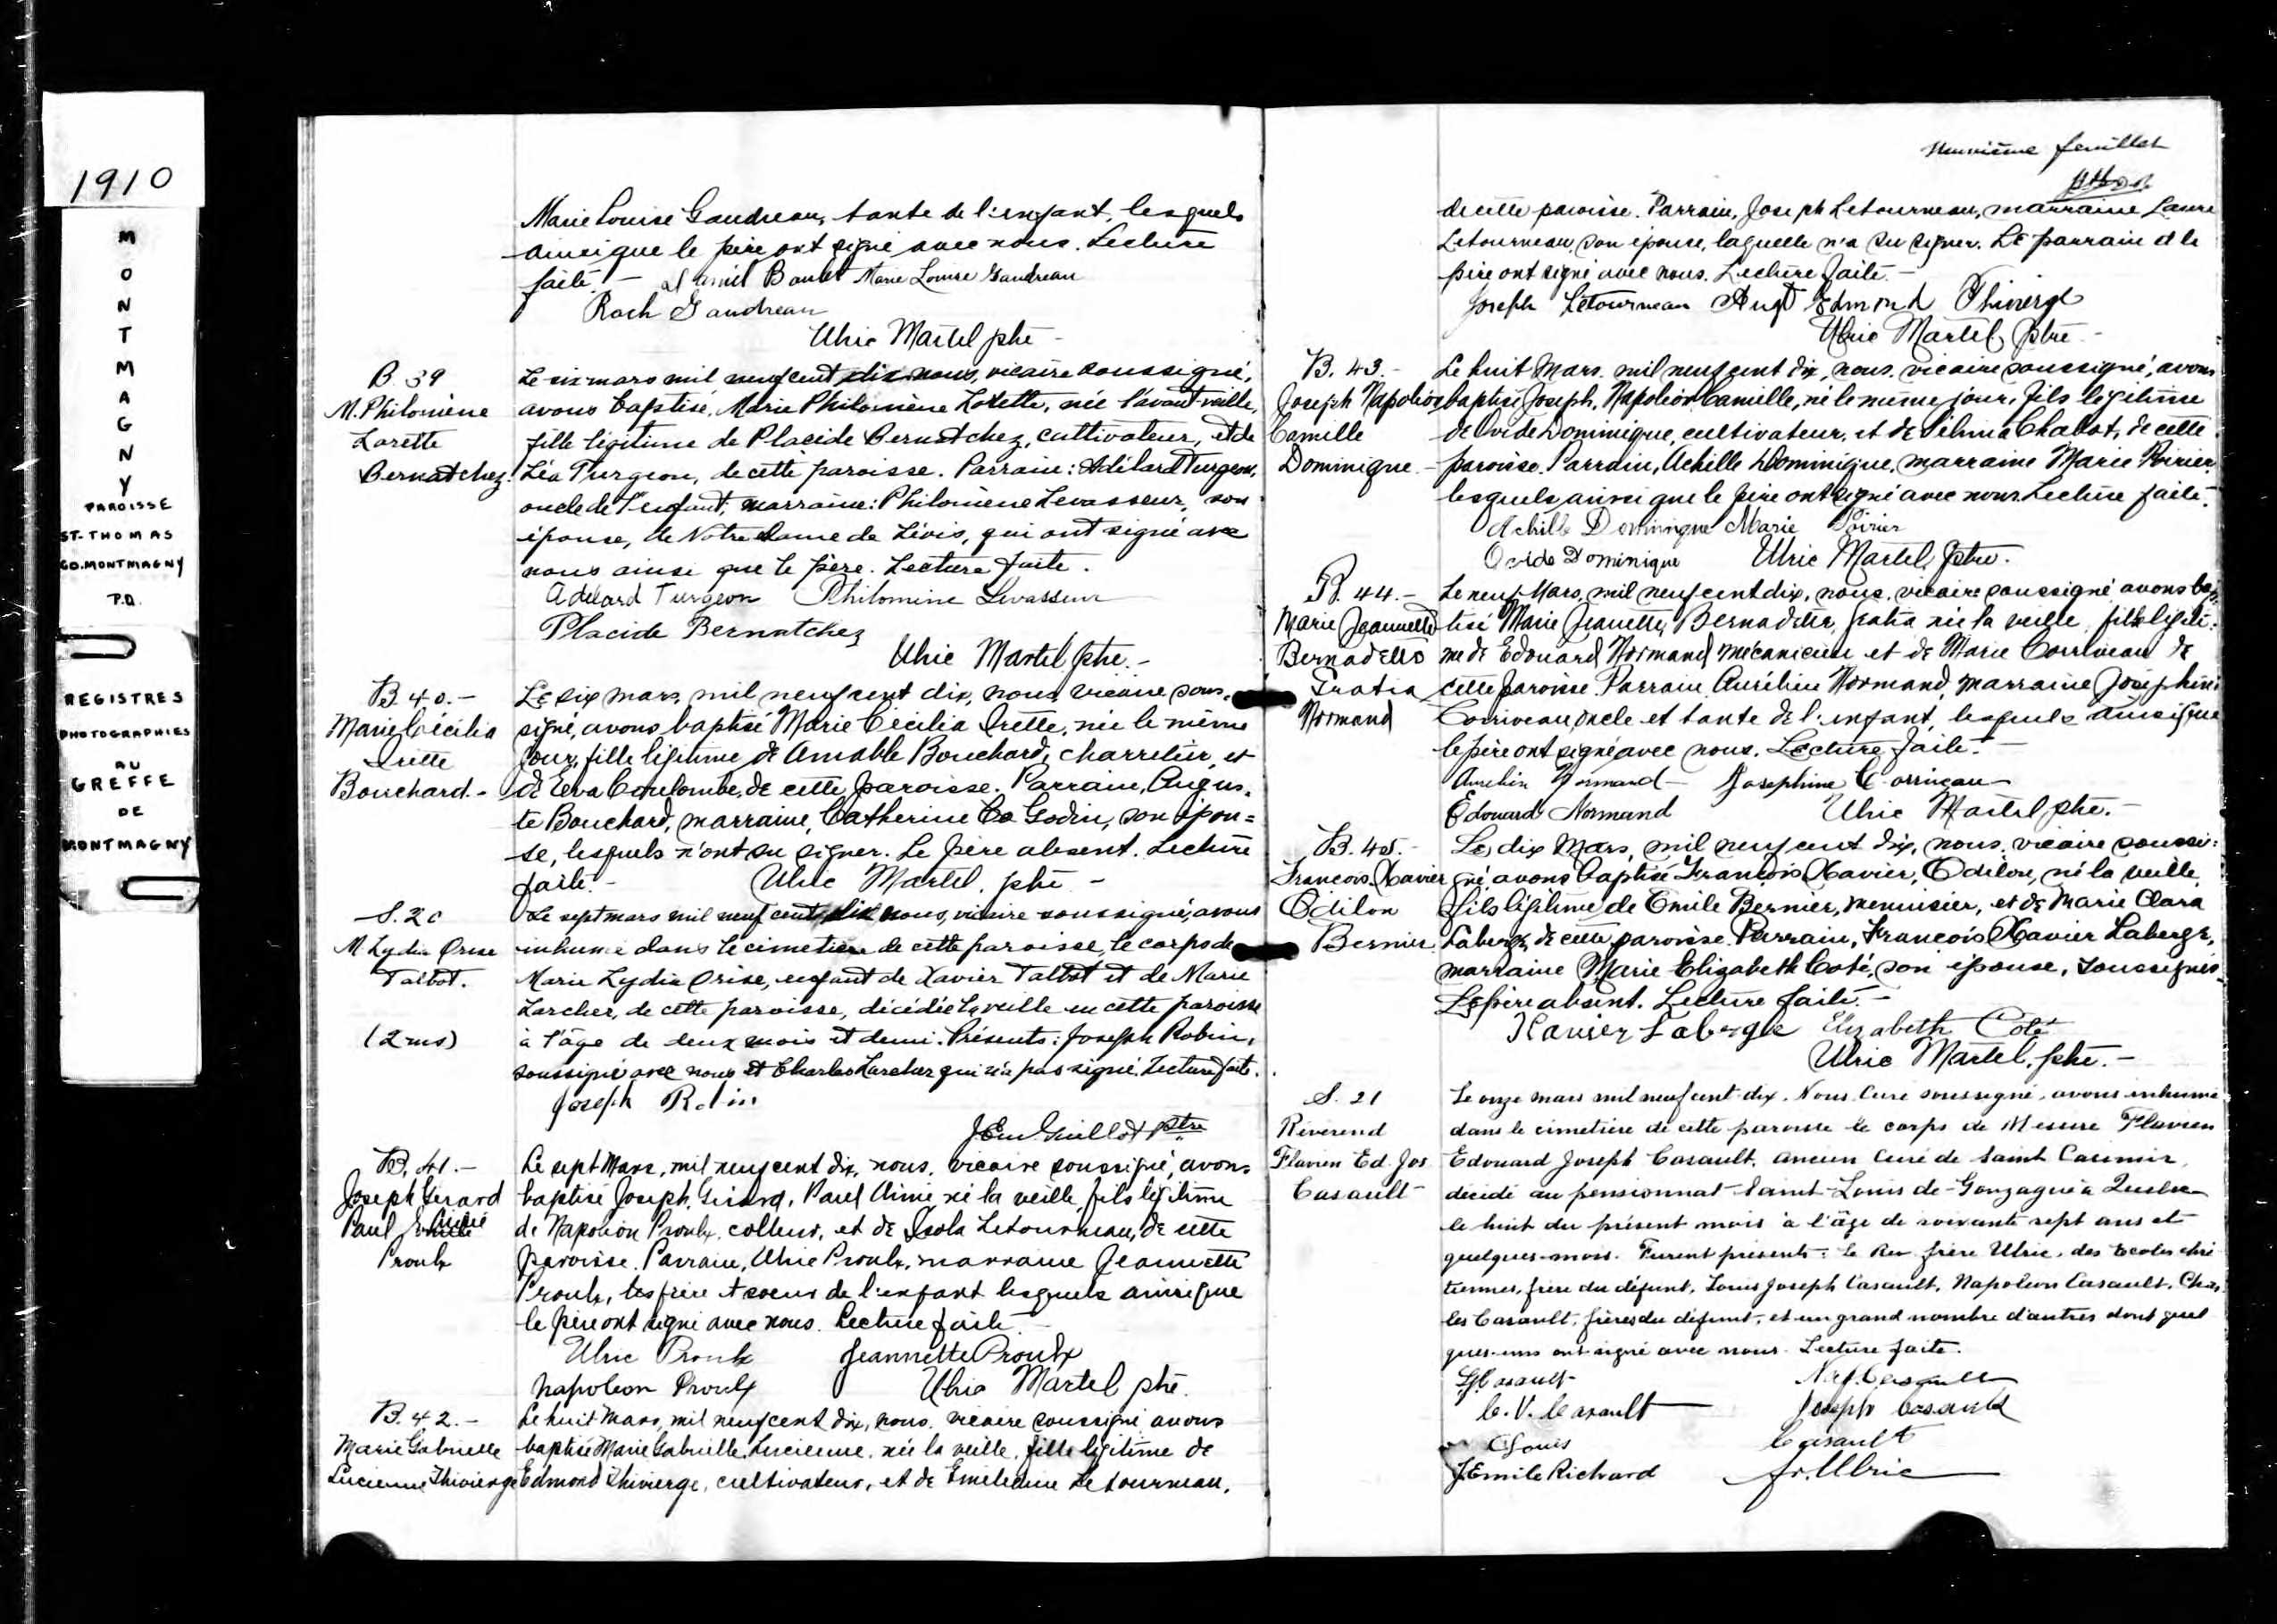 1910
MONTMAGNY
PAROISSE
ST-THOMAS
CO. MONTMAGNY
P.Q.
REGISTRES
PHOTOGRAPHIES
AU
GREFFE
DE
MONTMAGNY
Marie Louise Gaudreau, tante de l'enfant, lesquels
ainsi que le père ont signé avec nous. Lecture
faite. - Boulet Marie Louise Gaudreau
Roch Gaudreau
Ulric Martel ptre -
B. 39
M. Philomène
Lorette
Bernatchez.
Le six mars mil neuf cent dix nous, vicaire soussigné,
avons baptisé, Marie Philomène Lorette, née l'avant veille,
fille légitime de Placide Bernatchez, cultivateur, et de
Léa Turgeon, de cette paroisse. Parrain: Adélard Turgeon,
oncle de l'enfant, marraine: Philomène Levasseur, son
épouse, de Notre Dame de Lévis, qui ont signé avec
nous ainsi que le père. Lecture faite.
Adelard Turgeon Philomine Levasseur
Placide Bernatchez
Ulric Martel ptre. -
B. 40. -
Marie Cécilia
Irette
Bouchard. -
Le six mars, mil neuf cent dix, nous, vicaire sous-
signé, avons baptisé Marie Cécilia Irette, née le même
jour, fille légitime de Amable Bouchard, charretier, et
de Eva Coulombe, de cette paroisse. Parrain, Augus-
te Bouchard, marraine, Catherine Co Godin, son épou=
se, lesquels n'ont su signer. Le père absent. Lecture
faite. - Ulric Martel. ptre -
S. 20
M Lydia Orise
Talbot.
(2 ms)
Le sept mars mil neuf cent dix nous, vicaire soussigné, avons
inhumé dans le cimetière de cette paroisse, le corps de
Marie Lydia Orise, enfant de Xavier Talbot et de Marie
Larcher, de cette paroisse, décédée la veille en cette paroisse
à l'âge de deux mois et demi. Présents: Joseph Robin,
soussigné avec nous et Charles Larcher qui n'a pas signé. Lecture faite.
Joseph Robin
J Em Guillot ptre
B. 41. -
Joseph Gerard
Paul Aimé
Proulx
Le sept Mars, mil neuf cent dix, nous, vicaire soussigné, avons
baptisé Joseph, Gérard, Paul Aimé né la veille, fils légitime
de Napoléon Proulx, colleur, et de Isola Letourneau, de cette
paroisse. Parrain, Ulric Proulx, marraine Jeannette
Proulx, les frère et soeur de l'enfant lesquels ainsi que
le père ont signé avec nous. Lecture faite. -
Ulric Proulx Jeannette Proulx
Napoleon Proulx Ulric Martel ptre.
B. 42. -
Marie Gabrielle
Lucienne Thivierge
Le huit Mars, mil neuf cent dix, nous, vicaire soussigné avons
baptisé Marie Gabrielle, Lucienne, née la veille, fille légitime de
Edmond Thivierge, cultivateur, et de Emiledine Letourneau,
Neuvième feuillet
de cette paroisse. Parrain, Joseph Letourneau, marraine Laure
Letourneau, son épouse, laquelle n'a su signer. Le parrain et le
père ont signé avec nous. Lecture faite. -
Joseph Letourneau Aug Edmond Thivierge
Ulric Martel, ptre -
B. 43. -
Joseph Napoléon
Camille
Dominique -
Le huit Mars, mil neuf cent dix, nous, vicaire soussigné, avons
baptisé Joseph, Napoléon Camille, né le même jour, fils légitime
de Ovide Dominique, cultivateur, et de Célina Chabot, de cette
paroisse. Parrain, Achille Dominique, marraine Marie Poirier
lesquels ainsi que le père ont signé avec nous. Lecture faite. -
Achille Dominique Marie Poirier
Ovide Dominique Ulric Martel, ptre.
B. 44. -
Marie Jeannette
Bernadette
Fratia
Normand
Le neuf Mars, mil neuf cent dix, nous, vicaire soussigné avons bap-
tisé Marie Jeanette, Bernadette, Fratia née la veille, fille légiti=
me de Edouard Normand mécanicien et de Marie Corriveau de
cette paroisse. Parrain, Aurélien Normand, marraine Joséphine
Corriveau, oncle et tante de l'enfant, lesquels ainsi que
le père ont signé avec nous. Lecture faite. -
Aurelien Normand Josephine Corriveau
Edouard Normand Ulric Martel ptre. -
B. 45. -
François-Xavier
Odilon
Bernier
Le dix Mars, mil neuf cent dix, nous, vicaire soussi=
gné, avons baptisé François Xavier, Odilon, né la veille,
fils légitime de Emile Bernier, menuisier, et de Marie Clara
Laberge, de cette paroisse. Parrain, François Xavier Laberge,
marraine Marie Elizabeth Coté, son épouse, soussignés.
Le père absent. Lecture faite. -
Xavier Laberge Elizabeth Coté
Ulric Martel, ptre. -
S. 21
Révérend
Flavien Ed. Jos
Casault
Le onze mars mil neuf cent dix. Nous Curé soussigné, avons inhumé
dans le cimetière de cette paroisse le corps de Messire Flavien
Edouard Joseph Casault, ancien Curé de Saint Casimir,
décédé au pensionnat Saint-Louis de-Gonzague à Québec
le huit du présent mois à l'âge de soixante sept ans et
quelques mois. Furent présents: le Rev. frère Ulric, des Ecoles chré
tiennes, frère du défunt, Louis Joseph Casault, Napoleon Casault, Char
les Casault, frères du défunt, et un grand nombre d'autres dont quel
ques-uns ont signé avec nous. Lecture faite.
LJ Casault Nap. Casault
C. V. Casault Joseph Casault
Louis Casault
J Emile Richard fr. Ulric